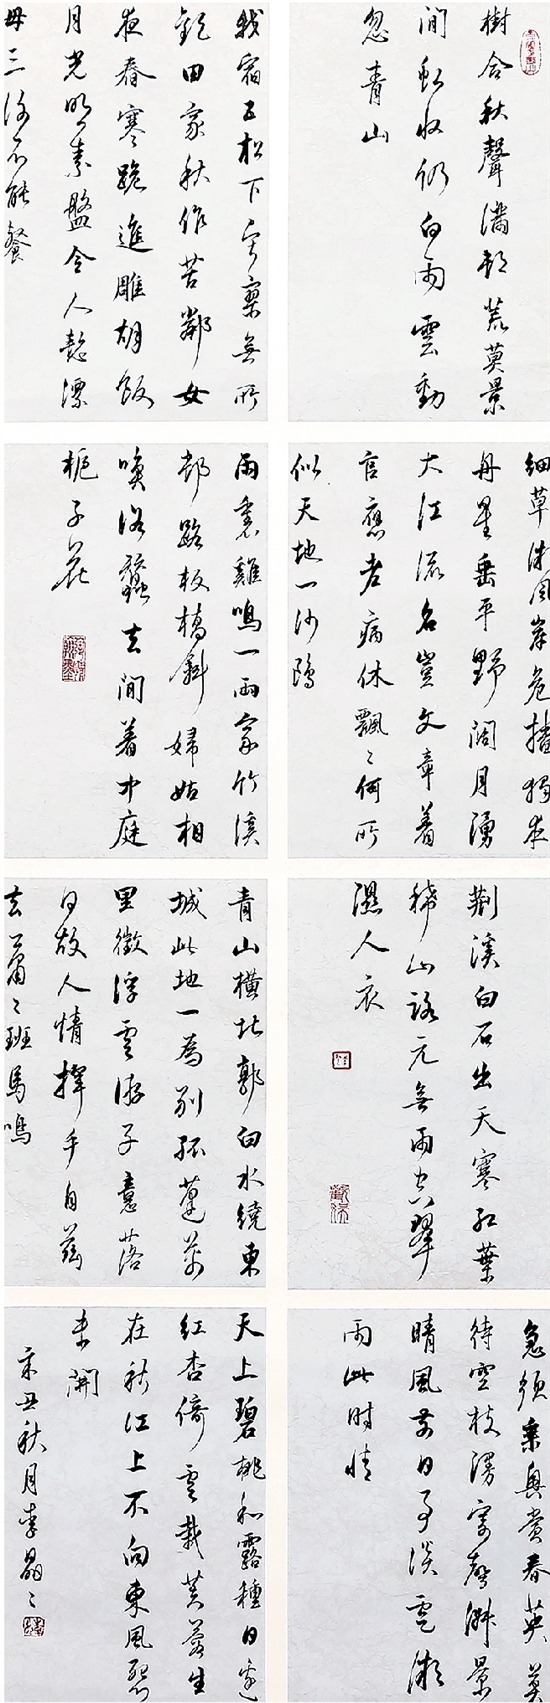 樹合秋聲滿村荒莫景
間虹收仍白雨雲動
忽青山
我宿五松下寂寥無所
歡田家秋作苦鄰女
夜舂寒跪進雕胡飯
月光明素盤令人慙漂
母三謝不能餐
細草微風岸危檣獨夜
舟星垂平野闊月湧
大江流名豈文章著
官應老病休飄飄何所
似天地一沙鷗
雨裏雞鳴一兩家竹溪
村路板橋斜婦姑相
喚浴蠶去閒着中庭
梔子花
荆溪白石出天寒紅葉
稀山路元無雨空翠
濕人衣
青山橫北郭白水繞東
城此地一為別孤蓬萬
里徵浮雲游子意落
日故人情揮手自茲
去蕭蕭班馬鳴
急須乘興賞春英莫
待空枝漫寄聲淑景
晴風前日事淡雲微
雨此時情
天上碧桃和露種日邊
紅杏倚雲栽芙蓉生
在秋江上不向東風怨
未開
辛丑秋月李晶晶